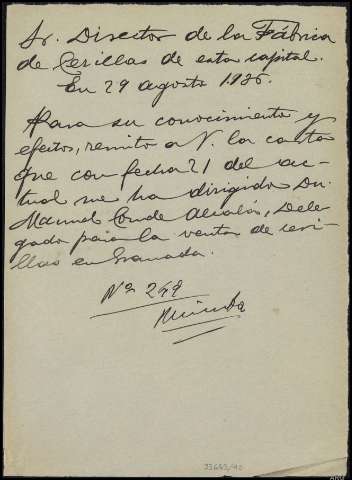 Sr. Director de la Fábrica
de Cerillas de esta capital.
En 29 agosto 1936.
Para su conocimiento y
efectos, remito a V. la carta
que con fecha 21 del ac-
tual me ha dirigido Dn.
Manuel Conde Alcalá, Dele-
gado para la venta de ceri-
llas en Granada.
Nº 269
Minuta